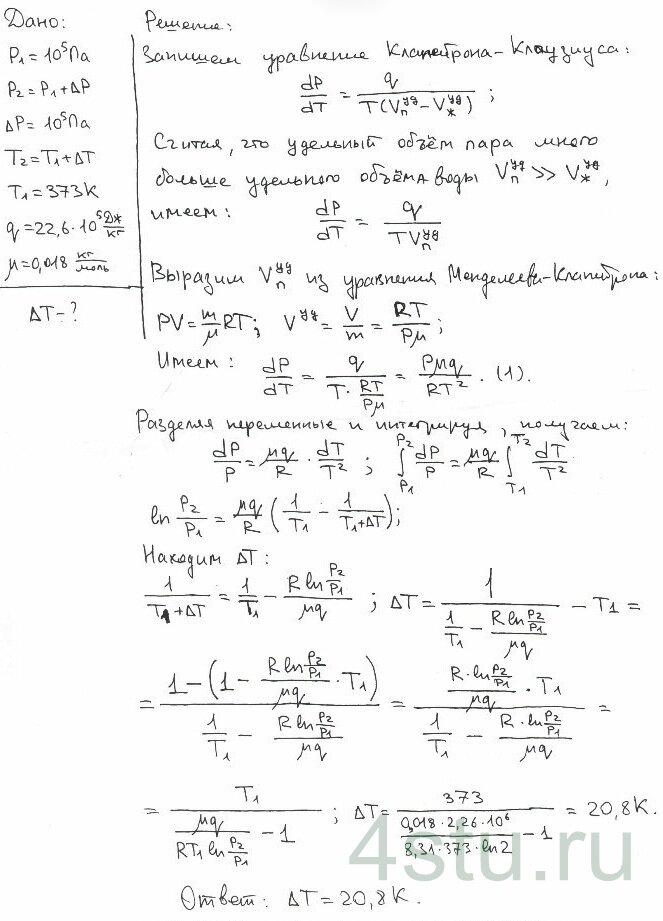 Дано:
P₁ = 10⁵ Па
P₂ = P₁ + ΔP
ΔP = 10⁵ Па
T₂ = T₁ + ΔT
T₁ = 373 К
q = 22,6·10⁵ Дж/кг
μ = 0,018 кг/моль
ΔT - ?
Решение:
Запишем уравнение Клапейрона-Клаузиуса:
dP/dT = q/(T(Vₙʸᵈ - Vжʸᵈ));
Считая, что удельный объём пара много
больше удельного объёма воды Vₙʸᵈ >> Vжʸᵈ,
имеем: dP/dT = q/(TVₙʸᵈ)
Выразим Vₙʸᵈ из уравнения Менделеева-Клапейрона:
PV = m/μ RT; Vʸᵈ = V/m = RT/(Pμ);
Имеем: dP/dT = q/(T·RT/(Pμ)) = Pμq/(RT²). (1).
Разделяя переменные и интегрируя, получаем:
dP/P = μq/R · dT/T²; ∫_{P₁}^{P₂} dP/P = μq/R ∫_{T₁}^{T₂} dT/T²
ln P₂/P₁ = μq/R (1/T₁ - 1/(T₁+ΔT));
Находим ΔT:
1/(T₁+ΔT) = 1/T₁ - (R ln P₂/P₁)/(μq); ΔT = 1/(1/T₁ - (R ln P₂/P₁)/(μq)) - T₁ =
= (1 - (1 - (R ln P₂/P₁)/(μq) · T₁))/(1/T₁ - (R ln P₂/P₁)/(μq)) = ((R·ln P₂/P₁)/(μq) · T₁)/(1/T₁ - (R·ln P₂/P₁)/(μq)) =
= T₁/(μq/(RT₁ ln P₂/P₁) - 1); ΔT = 373/((0,018·2,26·10⁶)/(8,31·373·ln2) - 1) = 20,8К.
4stu.ru
Ответ: ΔT = 20,8К.